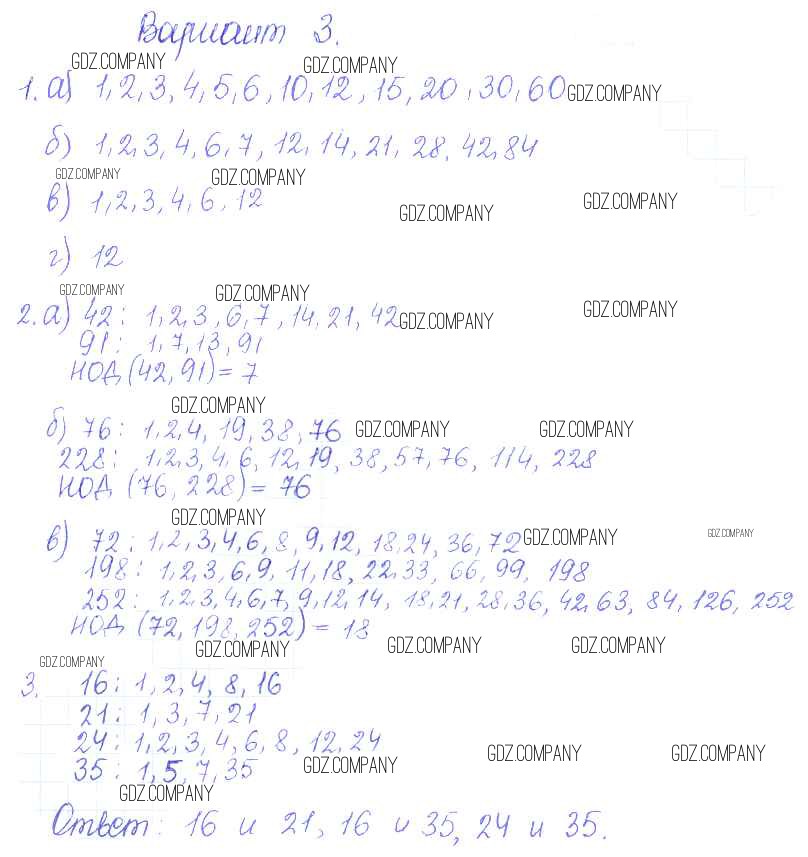 Вариант 3.
GDZ.COMPANY GDZ.COMPANY
1. а) 1, 2, 3, 4, 5, 6, 10, 12, 15, 20, 30, 60 GDZ.COMPANY
б) 1, 2, 3, 4, 6, 7, 12, 14, 21, 28, 42, 84
GDZ.COMPANY GDZ.COMPANY
в) 1, 2, 3, 4, 6, 12 GDZ.COMPANY GDZ.COMPANY
г) 12
GDZ.COMPANY GDZ.COMPANY
2. а) 42: 1, 2, 3, 6, 7, 14, 21, 42 GDZ.COMPANY GDZ.COMPANY
91: 1, 7, 13, 91
НОД (42, 91) = 7
GDZ.COMPANY
б) 76: 1, 2, 4, 19, 38, 76 GDZ.COMPANY GDZ.COMPANY
228: 1, 2, 3, 4, 6, 12, 19, 38, 57, 76, 114, 228
НОД (76, 228) = 76
GDZ.COMPANY
в) 72: 1, 2, 3, 4, 6, 8, 9, 12, 18, 24, 36, 72 GDZ.COMPANY GDZ.COMPANY
198: 1, 2, 3, 6, 9, 11, 18, 22, 33, 66, 99, 198
252: 1, 2, 3, 4, 6, 7, 9, 12, 14, 18, 21, 28, 36, 42, 63, 84, 126, 252
НОД (72, 198, 252) = 18
GDZ.COMPANY GDZ.COMPANY GDZ.COMPANY
GDZ.COMPANY
3. 16: 1, 2, 4, 8, 16
21: 1, 3, 7, 21
24: 1, 2, 3, 4, 6, 8, 12, 24
GDZ.COMPANY GDZ.COMPANY
35: 1, 5, 7, 35 GDZ.COMPANY
GDZ.COMPANY
Ответ: 16 и 21, 16 и 35, 24 и 35.